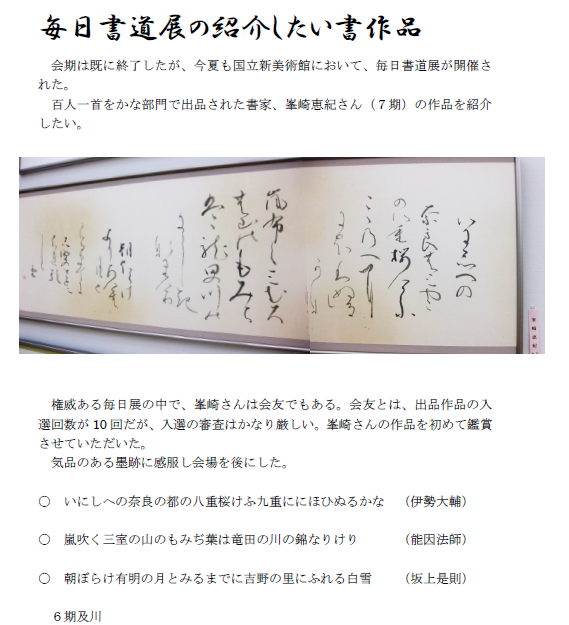 毎日書道展の紹介したい書作品
会期は既に終了したが、今夏も国立新美術館において、毎日書道展が開催さ
れた。
百人一首をかな部門で出品された書家、峯崎恵紀さん（７期）の作品を紹介
したい。
いにしへの
奈良のみやこ
の八重桜
権威ある毎日展の中で、峯崎さんは会友でもある。会友とは、出品作品の入
選回数が 10 回だが、入選の審査はかなり厳しい。峯崎さんの作品を初めて鑑賞
させていただいた。
気品のある墨跡に感服し会場を後にした。
○ いにしへの奈良の都の八重桜けふ九重ににほひぬるかな （伊勢大輔）
○ 嵐吹く三室の山のもみぢ葉は竜田の川の錦なりけり （能因法師）
○ 朝ぼらけ有明の月とみるまでに吉野の里にふれる白雪 （坂上是則）
６期及川